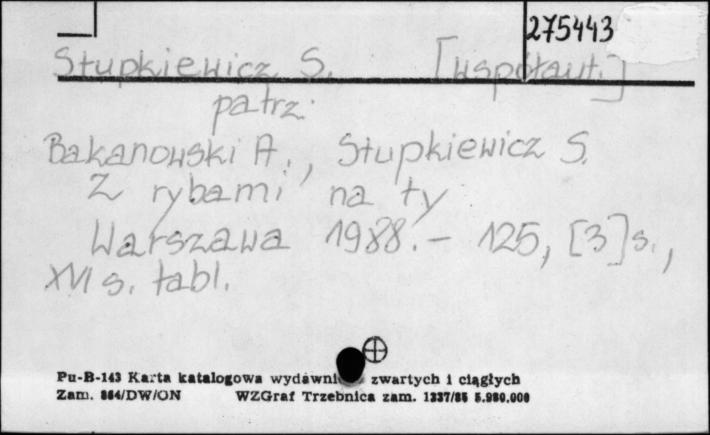 275443
Stupkiewicz S. [współaut.]
patrz:
Bakanowski A., Stupkiewicz S.
Z rybami na ty
Warszawa 1988. – 125, [3] s.,
XVI s. tabl.
Pu-B-143 Karta katalogowa zwartych i ciągłych
Zam. 864/DW/ON WZGraf Trzebnica zam. 1337/85 5.980.000